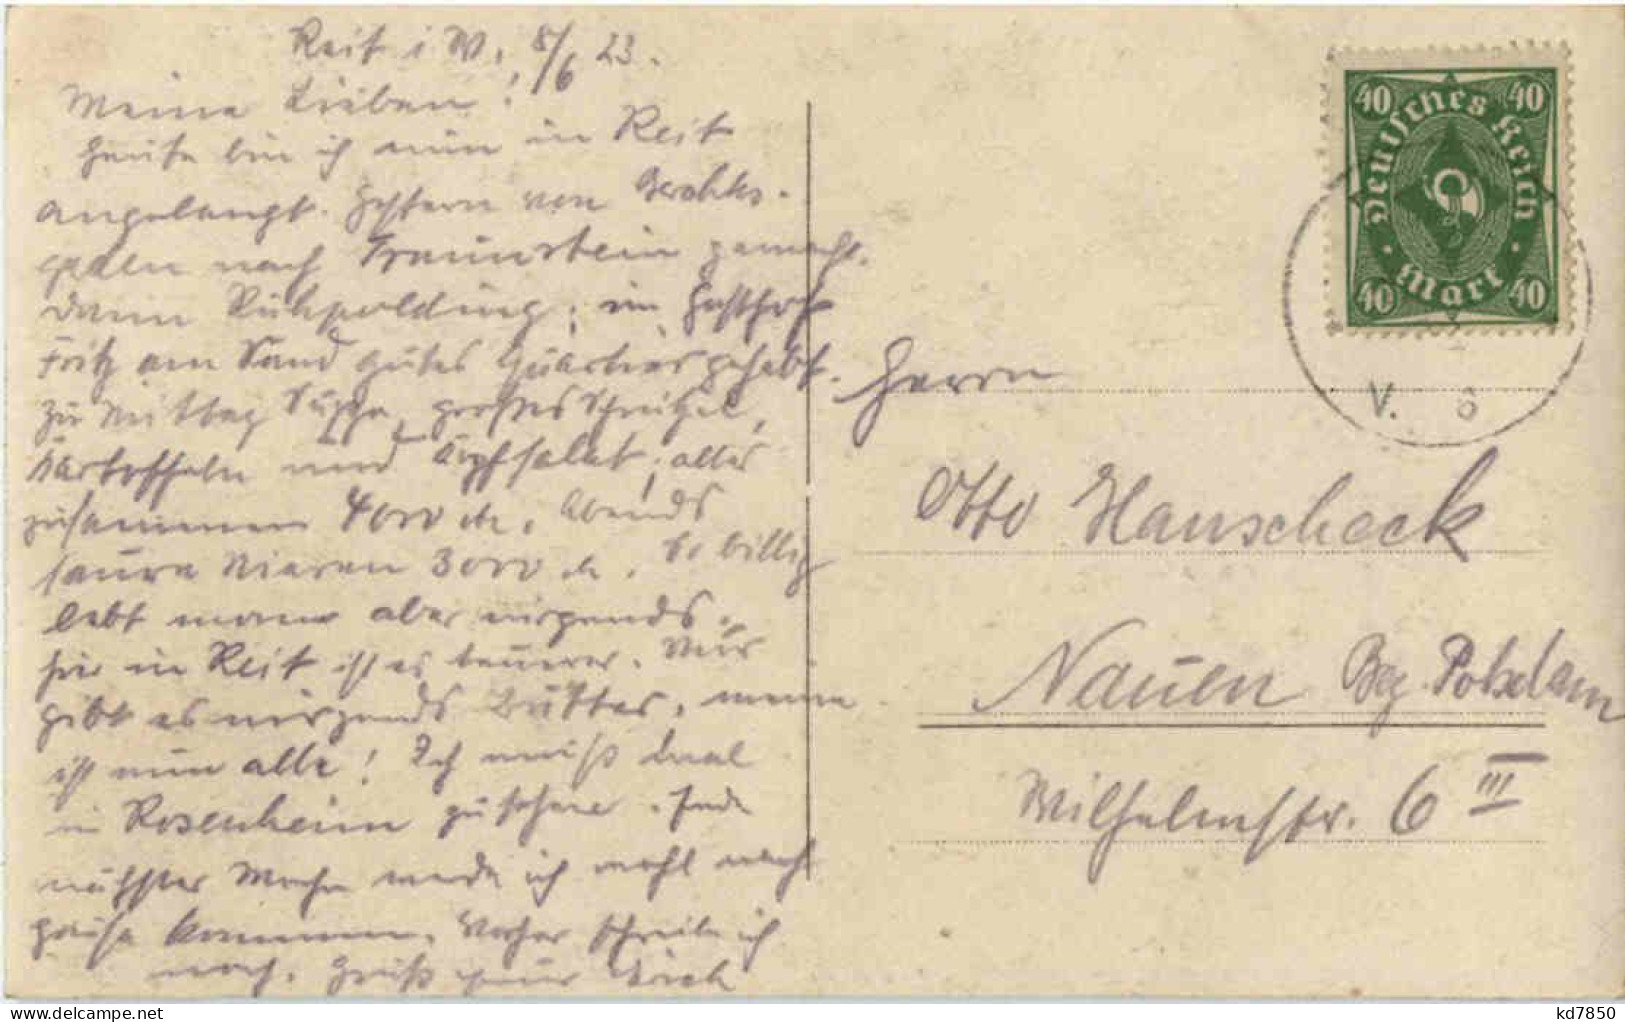 Reit i W, 8/6 23.
Meine Lieben!
Heute bin ich nun in Reit
angelangt. Gestern von Berchtes-
gaden nach Traunstein gemacht.
Dann Ruhpolding; im Gasthof
Fritz am Sand gutes Quartier gehabt.
Zu Mittag Suppe, großes Schnitzel,
Kartoffeln und Kopfsalat, alles
zusammen 4000 M. Abends
saure Nieren 3000 M. So billig
lebt man aber nirgends.
hier in Reit ist es teurer. Nur
gibt es nirgends Butter, meine
ist nun alle! Ich muß mal
in Rosenheim zusehen. Ende
nächster Woche werde ich wohl nach
Hause kommen. Vorher schreibe ich
noch. Gruß
Herrn
Otto Hanscheck
Nauen Bez. Potsdam
Wilhelmstr. 6 III
40 40
Deutsches Reich
Mark
40 40
V. 6
kd7850